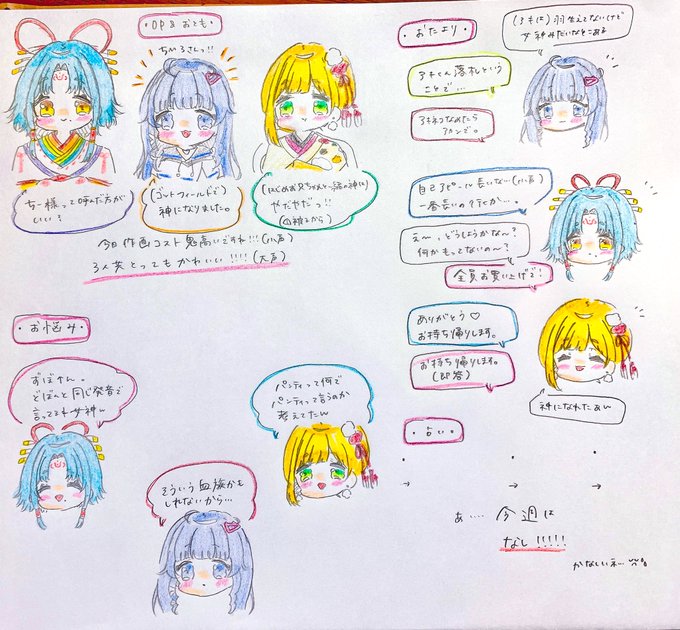 ・OP & おとも・
ちぃろさんっ!!
ちー様って呼んだ方が
いい?
(ゴッドフィールドで)
神になりました。
やだやだっ!!
今日 作画コスト鬼高いですね!!!(小声)
3人共とってもかわいい!!!!(大声)
・おたより・
羽生えてないけど
女神みたいなとこある
落札という
ことで…
アカンで。
自己アピール長いな(小声)
一番長いの?行くか…。
え〜、どうしようかな〜?
何かもってないの〜?
全員お買い上げで!
ありがとう♡
お持ち帰りします。
お持ち帰りします。
(即答)
神になれたぁw
・お悩み・
ずぼさん。
どぼんと同じ発音で
言ってるわ女神w
パンティって何で
パンティって言うのか
考えてたんw
そういう血族かも
しれないから…
・占い・
・ ・ ・
→ → →
あ…… 今週は
なし!!!!!
かなしいネ…